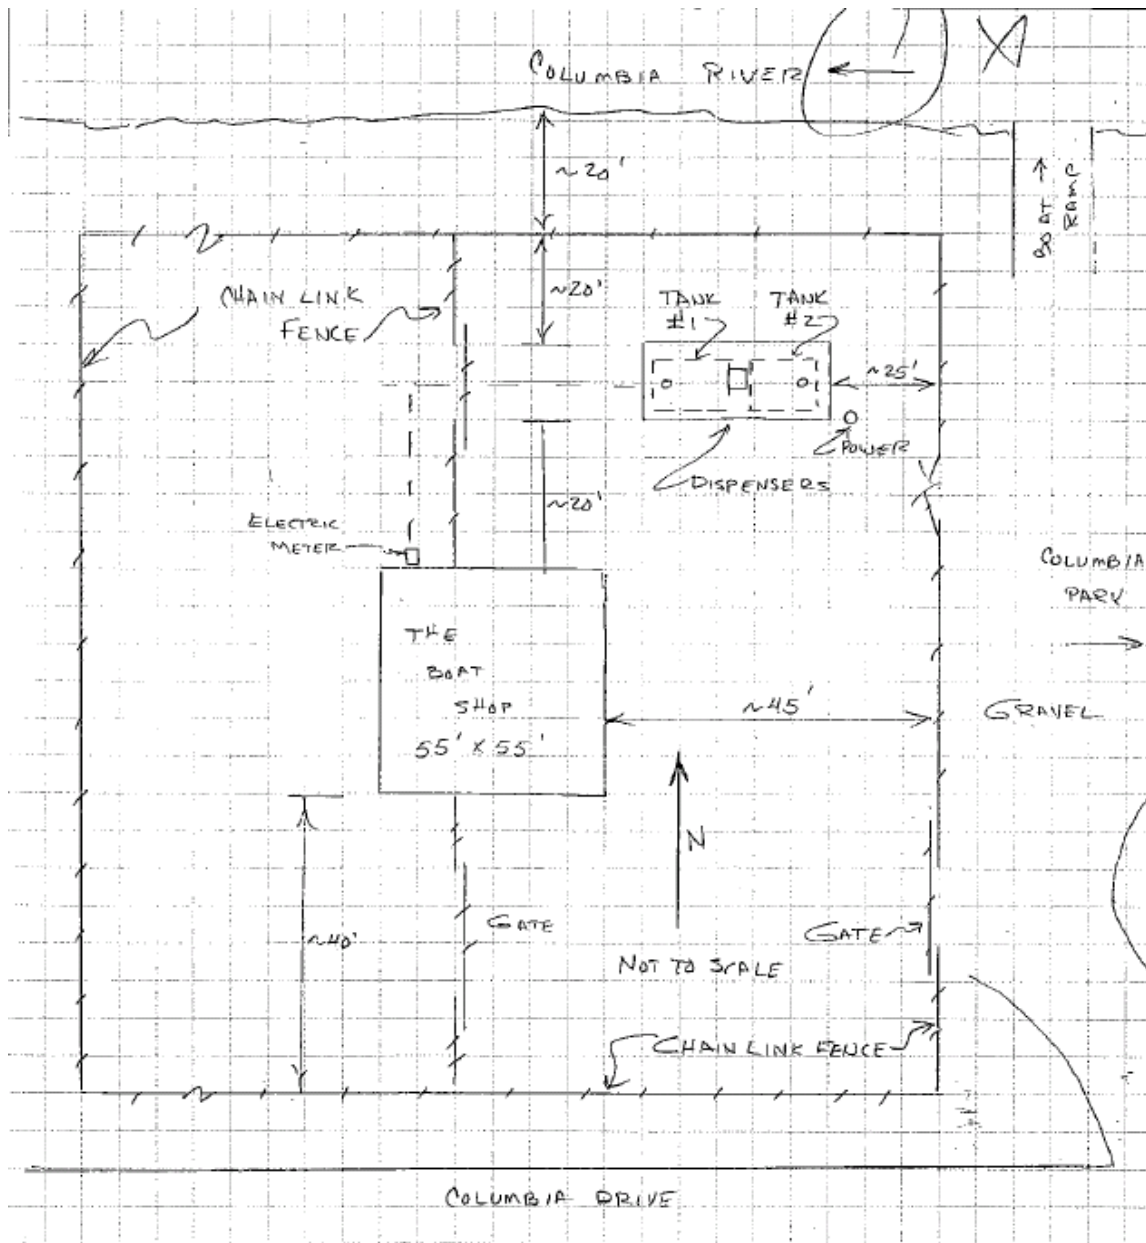 COLUMBIA RIVER
~20'
BOAT
RAMP
CHAIN LINK
FENCE
~20'
TANK
#1
TANK
#2
~25'
POWER
DISPENSERS
~20'
ELECTRIC
METER
COLUMBIA
PARK
THE
BOAT
SHOP
55' X 55'
~45'
GRAVEL
N
GATE
GATE
~40'
NOT TO SCALE
CHAIN LINK FENCE
COLUMBIA DRIVE